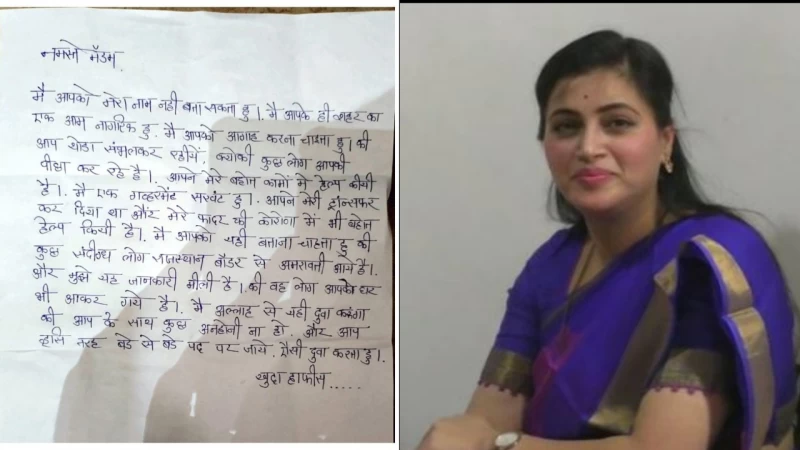 नमस्ते मॅडम,
मै आपको मेरा नाम नही बता सकता हु।. मै आपके ही शहर का
एक आम नागरिक हु. मै आपको आगाह करना चाहता हु। की
आप थोडा संभलकर रहीये. क्योकी कुछ लोग आपकी
पीछा कर रहे है।. आपने मेरे बहोत कामों मे हेल्प कीयी
है।. मै एक गव्हरमेंट सरवंट हु।. आपने मेरी ट्रान्सफर
कर दिया था और मेरे फादर की कोरोना में भी बहोत
हेल्प कियी है।. मै आपको यही बताना चाहता हु की
कुछ संदीग्ध लोग राजस्थान बॉडर से अमरावती आये है।.
और मुझे यह जानकारी मीली है।. की वह लोग आपके घर
भी आकर गये है।. मै अल्लाह से यही दुवा करुंगा
की आप के साथ कुछ अनहोनी ना हो. और आप
इसि तरह बडे से बडे पद पर जाये. ऐसी दुवा करता हु।.
खुदा हाफीस.....